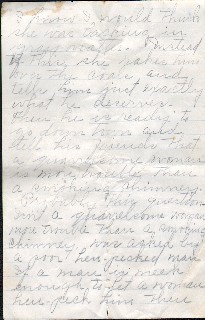 I would think
she was
Instead
of this she rakes him
over the coals, and
tells him just exactly
what he deserves.
Then he is ready to
go down town and
tell his friends that
a quarrelsome woman
is more trouble than
a smoking chimney.
Probably this question
isn't a quarrelsome woman
more trouble than a smoking
chimney, was asked by
a poor hen-pecked man
or a man meek
enough to let a woman
hen-peck him then